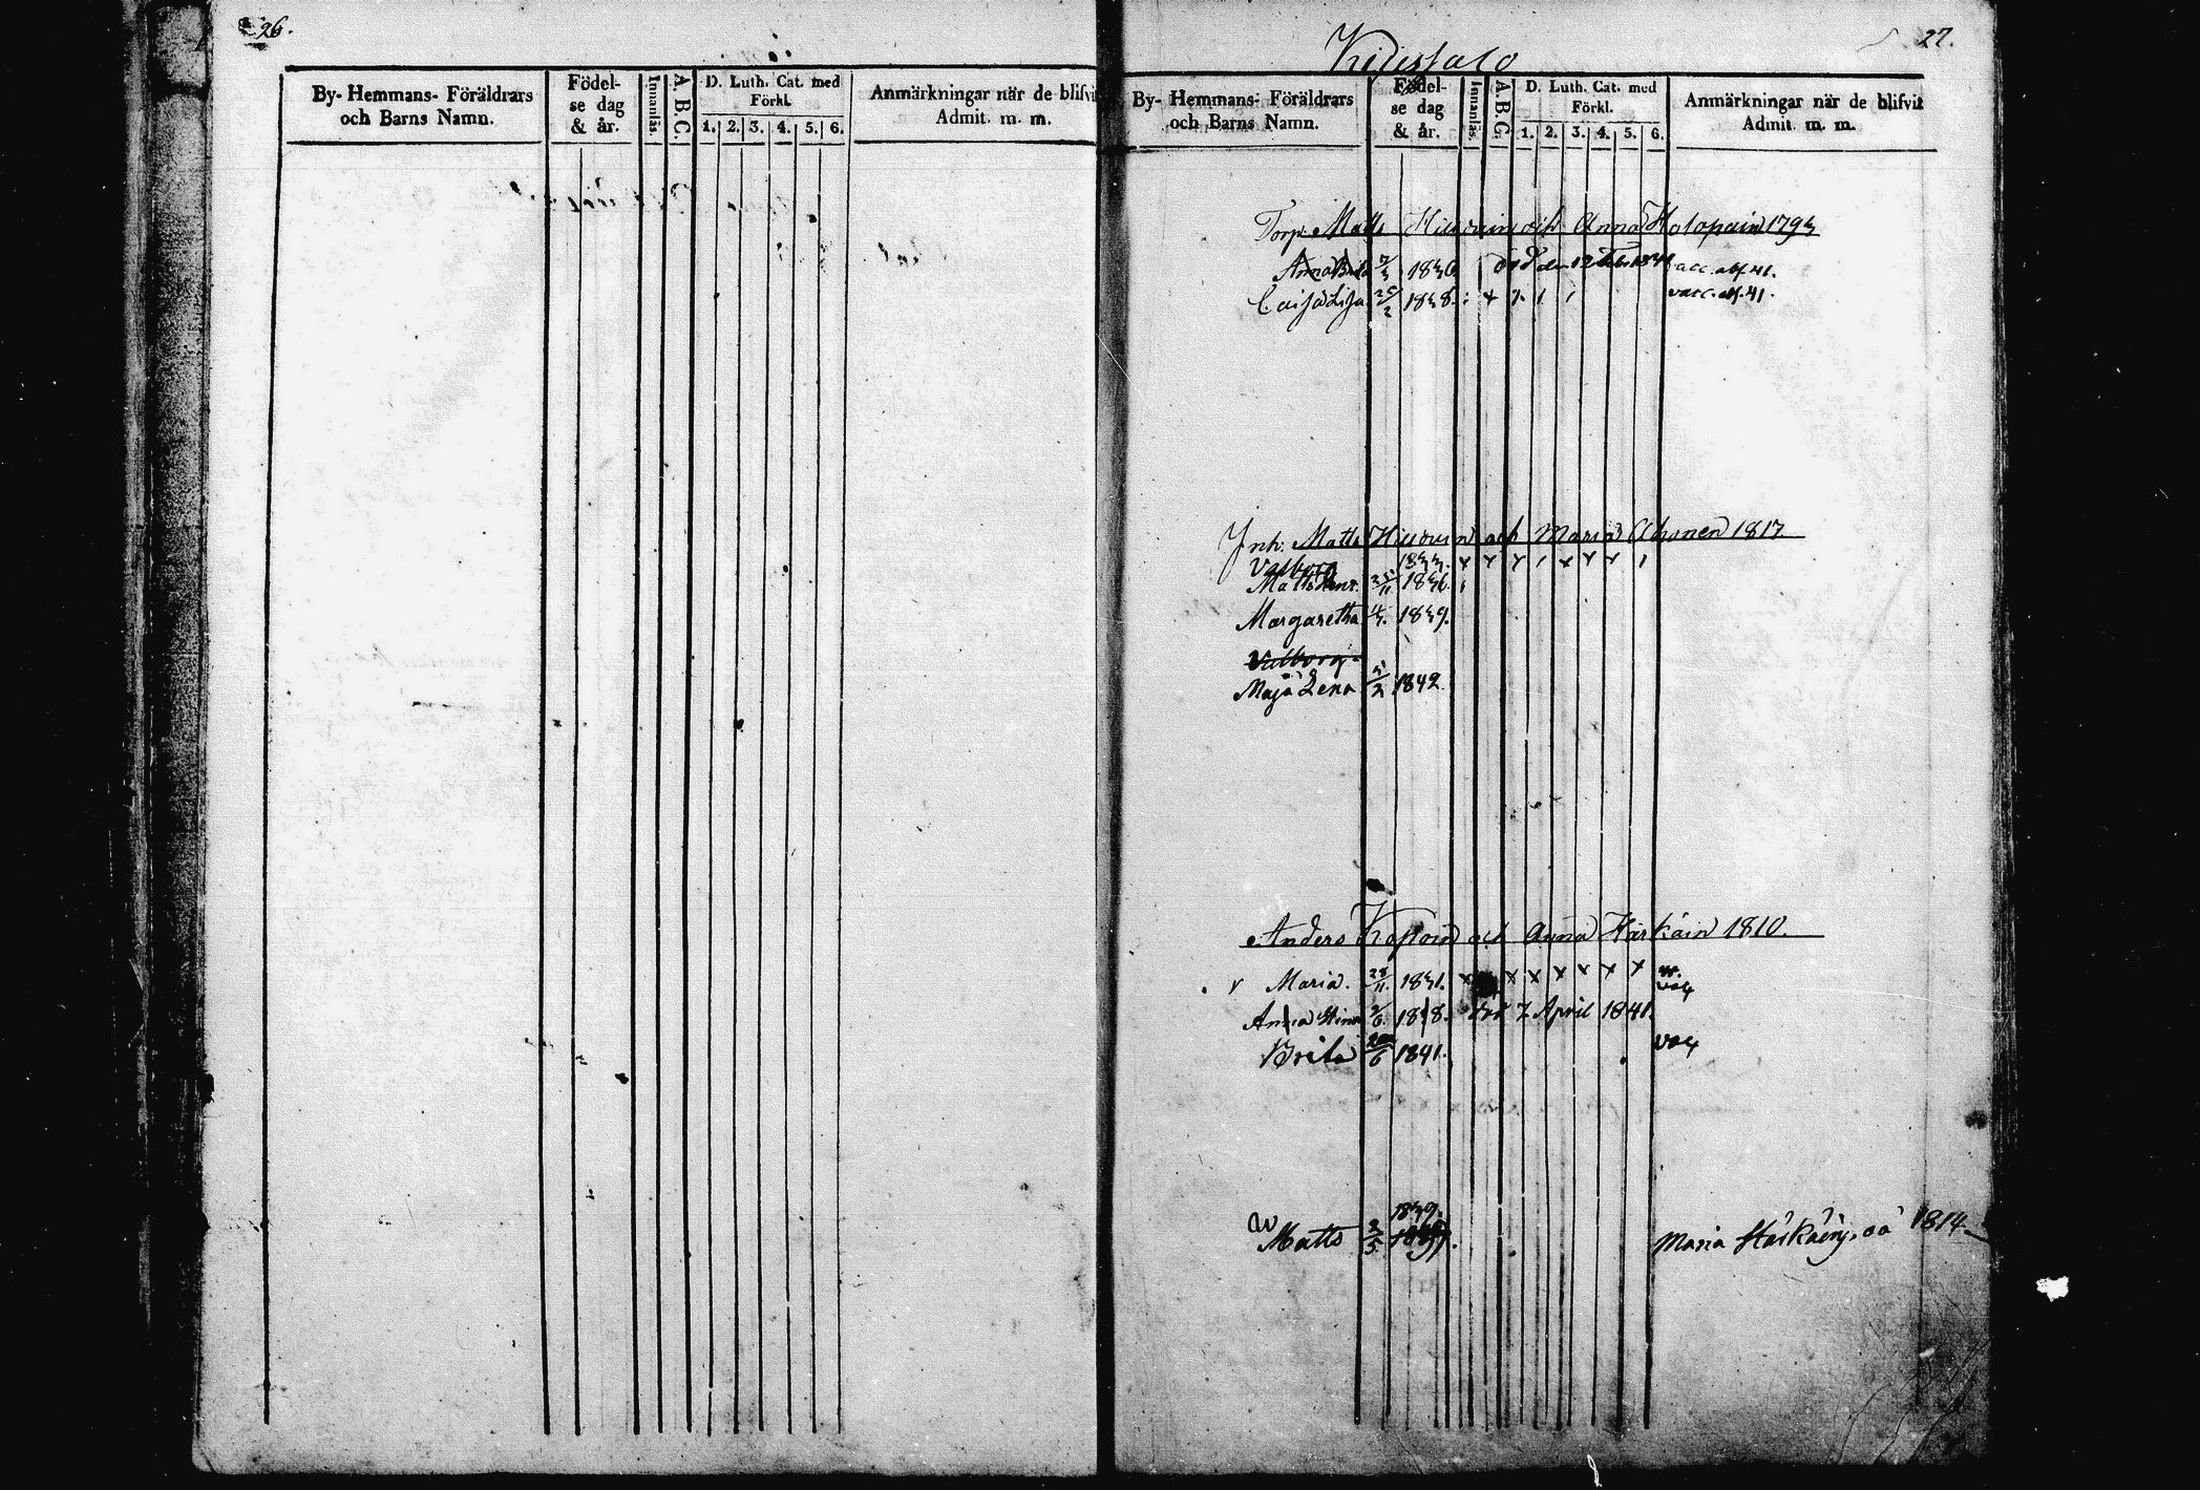 26.
By- Hemmans- Föräldrars
och Barns Namn.
Födel-
se dag
& år.
Innanläs.
A. B. C.
D. Luth. Cat. med
Förkl.
1. 2. 3. 4. 5. 6.
Anmärkningar när de blifvit
Admit. m. m.
27.
By- Hemmans- Föräldrars
och Barns Namn.
Födel-
se dag
& år.
Innanläs.
A. B. C.
D. Luth. Cat. med
Förkl.
1. 2. 3. 4. 5. 6.
Anmärkningar när de blifvit
Admit. m. m.
Torp. Matts och Anna Holopain 1793
Anna Brita 1836 död den 12 Feb. 1841
Caisa Lisa 1838. vacc. att. 41.
Inh. Matts och Maria Ahonen 1817
Valborg 1833. x x x / x x x /
Matts Henr. 25/11 1836.
Margaretha 1839.
Valborg
Maja Lena 1842
Anders och Anna Härkäin 1810.
v Maria. 28/11 1831. x x x x x x x
Anna Stina 1838. död 7 April 1841.
Brita 1841. vac
1839.
Matts 2/5
Maria Härkäin 1814